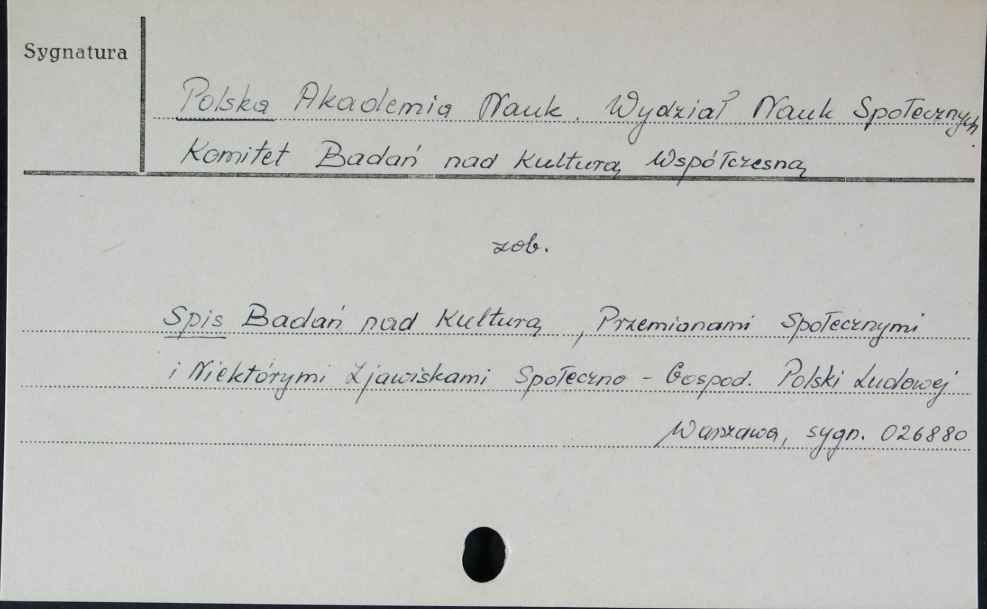 Sygnatura
Polska Akademia Nauk. Wydział Nauk Społecznych.
Komitet Badań nad Kulturą Współczesną
zob.
Spis Badań nad Kulturą, Przemianami Społecznymi
i Niektórymi Zjawiskami Społeczno - Gospod. Polski Ludowej
Warszawa, sygn. 026880